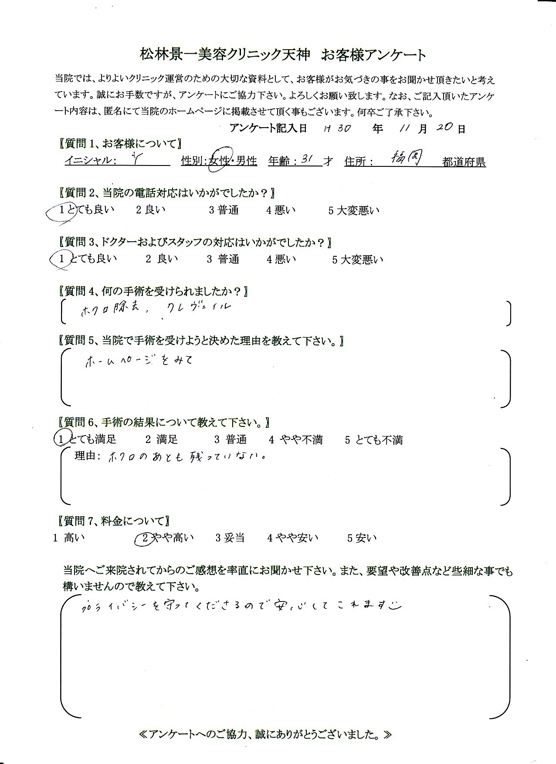 松林景一美容クリニック天神　お客様アンケート
当院では、よりよいクリニック運営のための大切な資料として、お客様がお気づきの事をお聞かせ頂きたいと考え
ています。誠にお手数ですが、アンケートにご協力下さい。よろしくお願い致します。なお、ご記入頂いたアンケ
ート内容は、匿名にて当院のホームページに掲載させて頂く事もございます。何卒ご了承下さい。
アンケート記入日　H 30　年　11月　20日
【質問1、お客様について】
イニシャル：　性別：女性・男性　年齢：31才　住所：福岡　都道府県
【質問2、当院の電話対応はいかがでしたか？】
1とても良い　2良い　3普通　4悪い　5大変悪い
【質問3、ドクターおよびスタッフの対応はいかがでしたか？】
1とても良い　2 良い　3 普通　4悪い　5大変悪い
【質問4、何の手術を受けられましたか？】
ホクロ除去、クレヴェイル
【質問5、当院で手術を受けようと決めた理由を教えて下さい。】
ホームページをみて
【質問6、手術の結果について教えて下さい。】
1とても満足　2 満足　3 普通　4 やや不満　5 とても不満
理由：ホクロのあとも残っていない。
【質問7、料金について】
1 高い　2やや高い　3妥当　4やや安い　5安い
当院へご来院されてからのご感想を率直にお聞かせ下さい。また、要望や改善点など些細な事でも
構いませんので教えて下さい。
プライバシーを守ってくださるので安心してこれます
≪アンケートへのご協力、誠にありがとうございました。≫